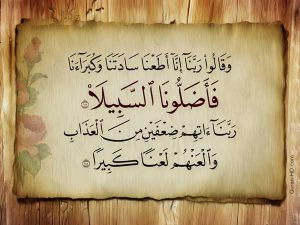 وَقَالُوا۟ رَبَّنَآ إِنَّآ أَطَعْنَا سَادَتَنَا وَكُبَرَآءَنَا
فَأَضَلُّونَا ٱلسَّبِيلَا۠
رَبَّنَآ ءَاتِهِمْ ضِعْفَيْنِ مِنَ ٱلْعَذَابِ
وَٱلْعَنْهُمْ لَعْنًا كَبِيرًا